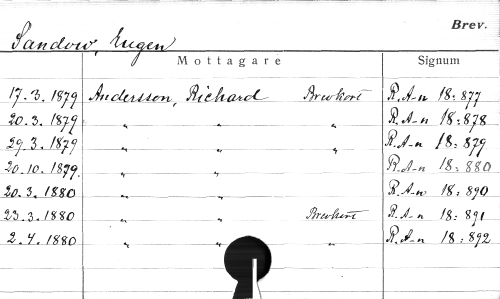 Brev.
Sandow, Eugen
Mottagare Signum
17.3.1879 Andersson, Richard Brevkort R.A-n 18:877
20.3.1879 " " " R.A-n 18:878
29.3.1879 " " " R.A-n 18:879
20.10.1879 " " R.A-n 18:880
20.3.1880 " " R.A-n 18:890
23.3.1880 " " Brevkort R.A-n 18:891
2.4.1880 " " " R.A-n 18:892